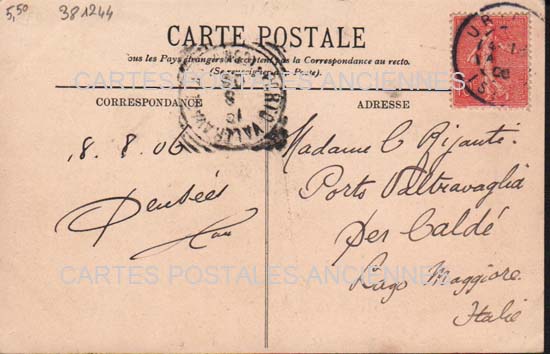 5,50 381244
CARTE POSTALE
Tous les Pays étrangers n'acceptent pas la Correspondance au recto.
(Se renseigner à la Poste).
CARTES POSTALES ANCIENNES
CORRESPONDANCE
ADRESSE
PORTO VALTRAVA
18.8.06
Pensées
Madame C Rijanti
Porto Valtravaglia
per Caldé
Lago Maggiore
Italie
CARTES POSTALES ANCIENNES